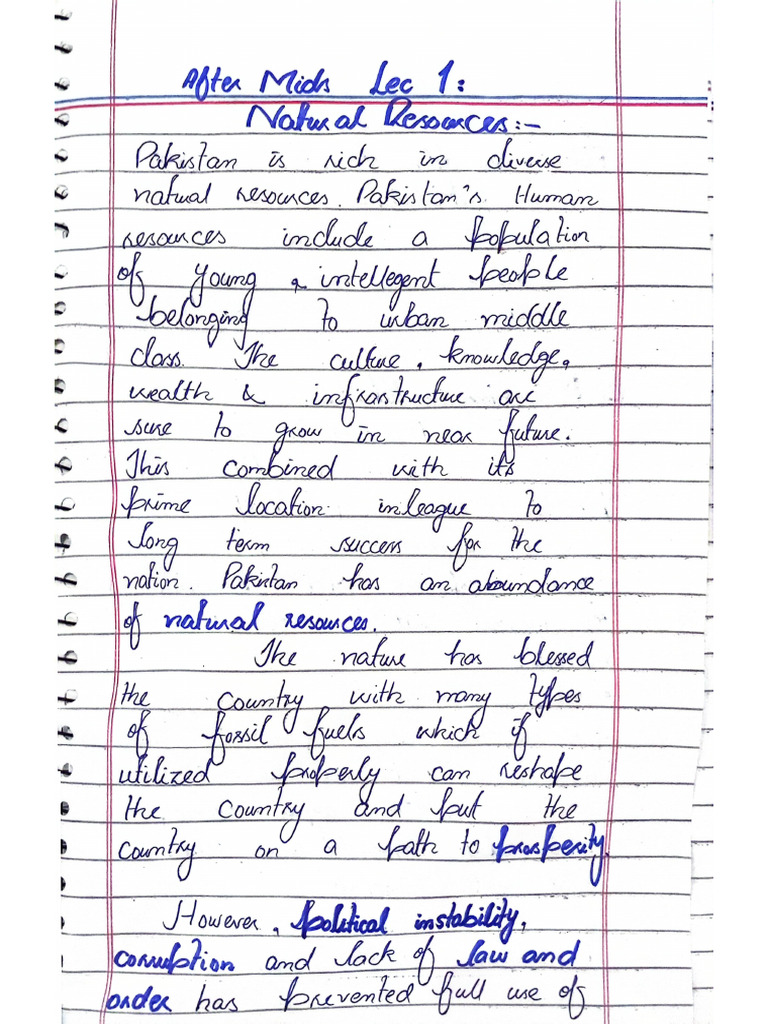 After Mids Lec 1:
Natural Resources:-
Pakistan is rich in diverse
natual resources. Pakistan's Human
resources include a population
of young & intellegent people
belonging to urban middle
class. The culture, knowledge,
wealth & infrastructure are
sure to grow in near future.
This combined with its
prime location inleague to
long term success for the
nation. Pakistan has an abundance
of natural resources.
The nature has blessed
the country with many types
of fossil fuels which if
utilized properly can reshape
the country and put the
country on a path to prosperity.
However, political instability,
corruption and lack of law and
order has prevented full use of